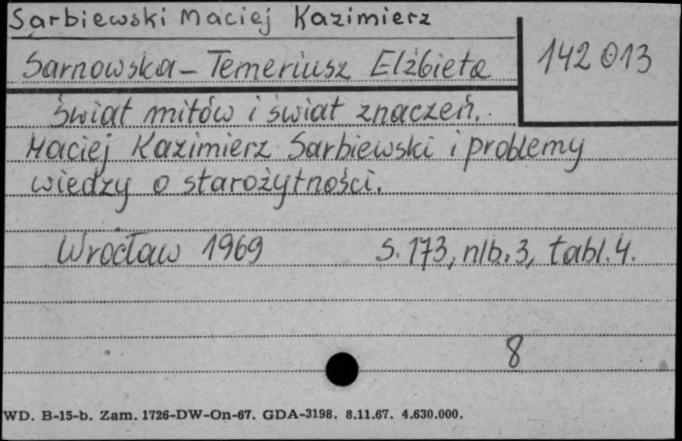 Sarbiewski Maciej Kazimierz
142 013
Sarnowska-Temeriusz Elżbieta
Świat mitów i świat znaczeń.
Maciej Kazimierz Sarbiewski i problemy
wiedzy o starożytności.
Wrocław 1969 S. 173, nlb. 3, tabl. 4.
8
WD. B-15-b. Zam. 1726-DW-On-67. GDA-3198. 8.11.67. 4.630.000.